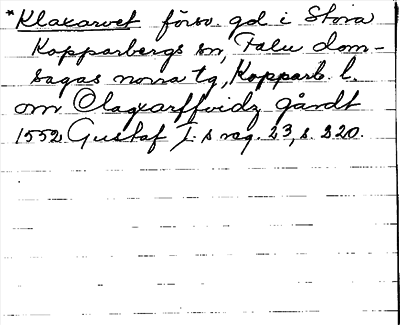 *Klaxarvet försv. gd i Stora
Kopparbergs sn, Falu dom-
sagas norra tg, Kopparb. l.
om Claxarffvidz gårdt
1552 Gustaf I:s reg. 23, s. 320.